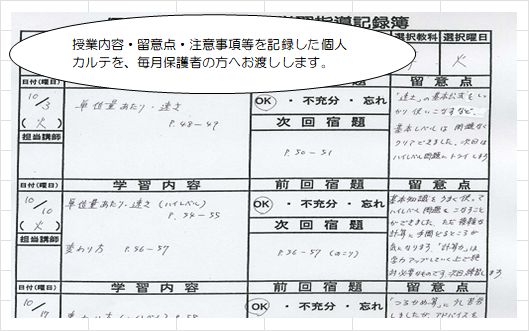 指導記録簿
授業内容・留意点・注意事項等を記録した個人
カルテを、毎月保護者の方へお渡しします。
選択教科 選択曜日
火
日付(曜日) 留意点
10/3
(火)
担当講師
単位量あたり・速さ
P.48-49
OK ・ 不充分 ・ 忘れ
次回宿題
P.50-51
「速さ」の基本公式をしっ
かり使いこなすなど、
基本レベルは問題なく
クリアできました。次回は
ハイレベル問題にトライします
日付(曜日) 学習内容 前回宿題 留意点
10/10
(火)
担当講師
単位量あたり・速さ(ハイレベル)
P.54-55
変わり方 P.56-57
OK ・ 不充分 ・ 忘れ
次回宿題
P.56-57(のこり)
基本知識をうまく使って
ハイレベル問題をこなすこと
ができました。ただ複雑な
計算に手間どるところが
気になります。「計算力」は
学力アップしていく上で絶
対必要なものです。
日付(曜日) 学習内容 前回宿題 留意点
10/17
OK ・ 不充分 ・ 忘れ
「つるかめ算」に
しましたが、アドバイスを